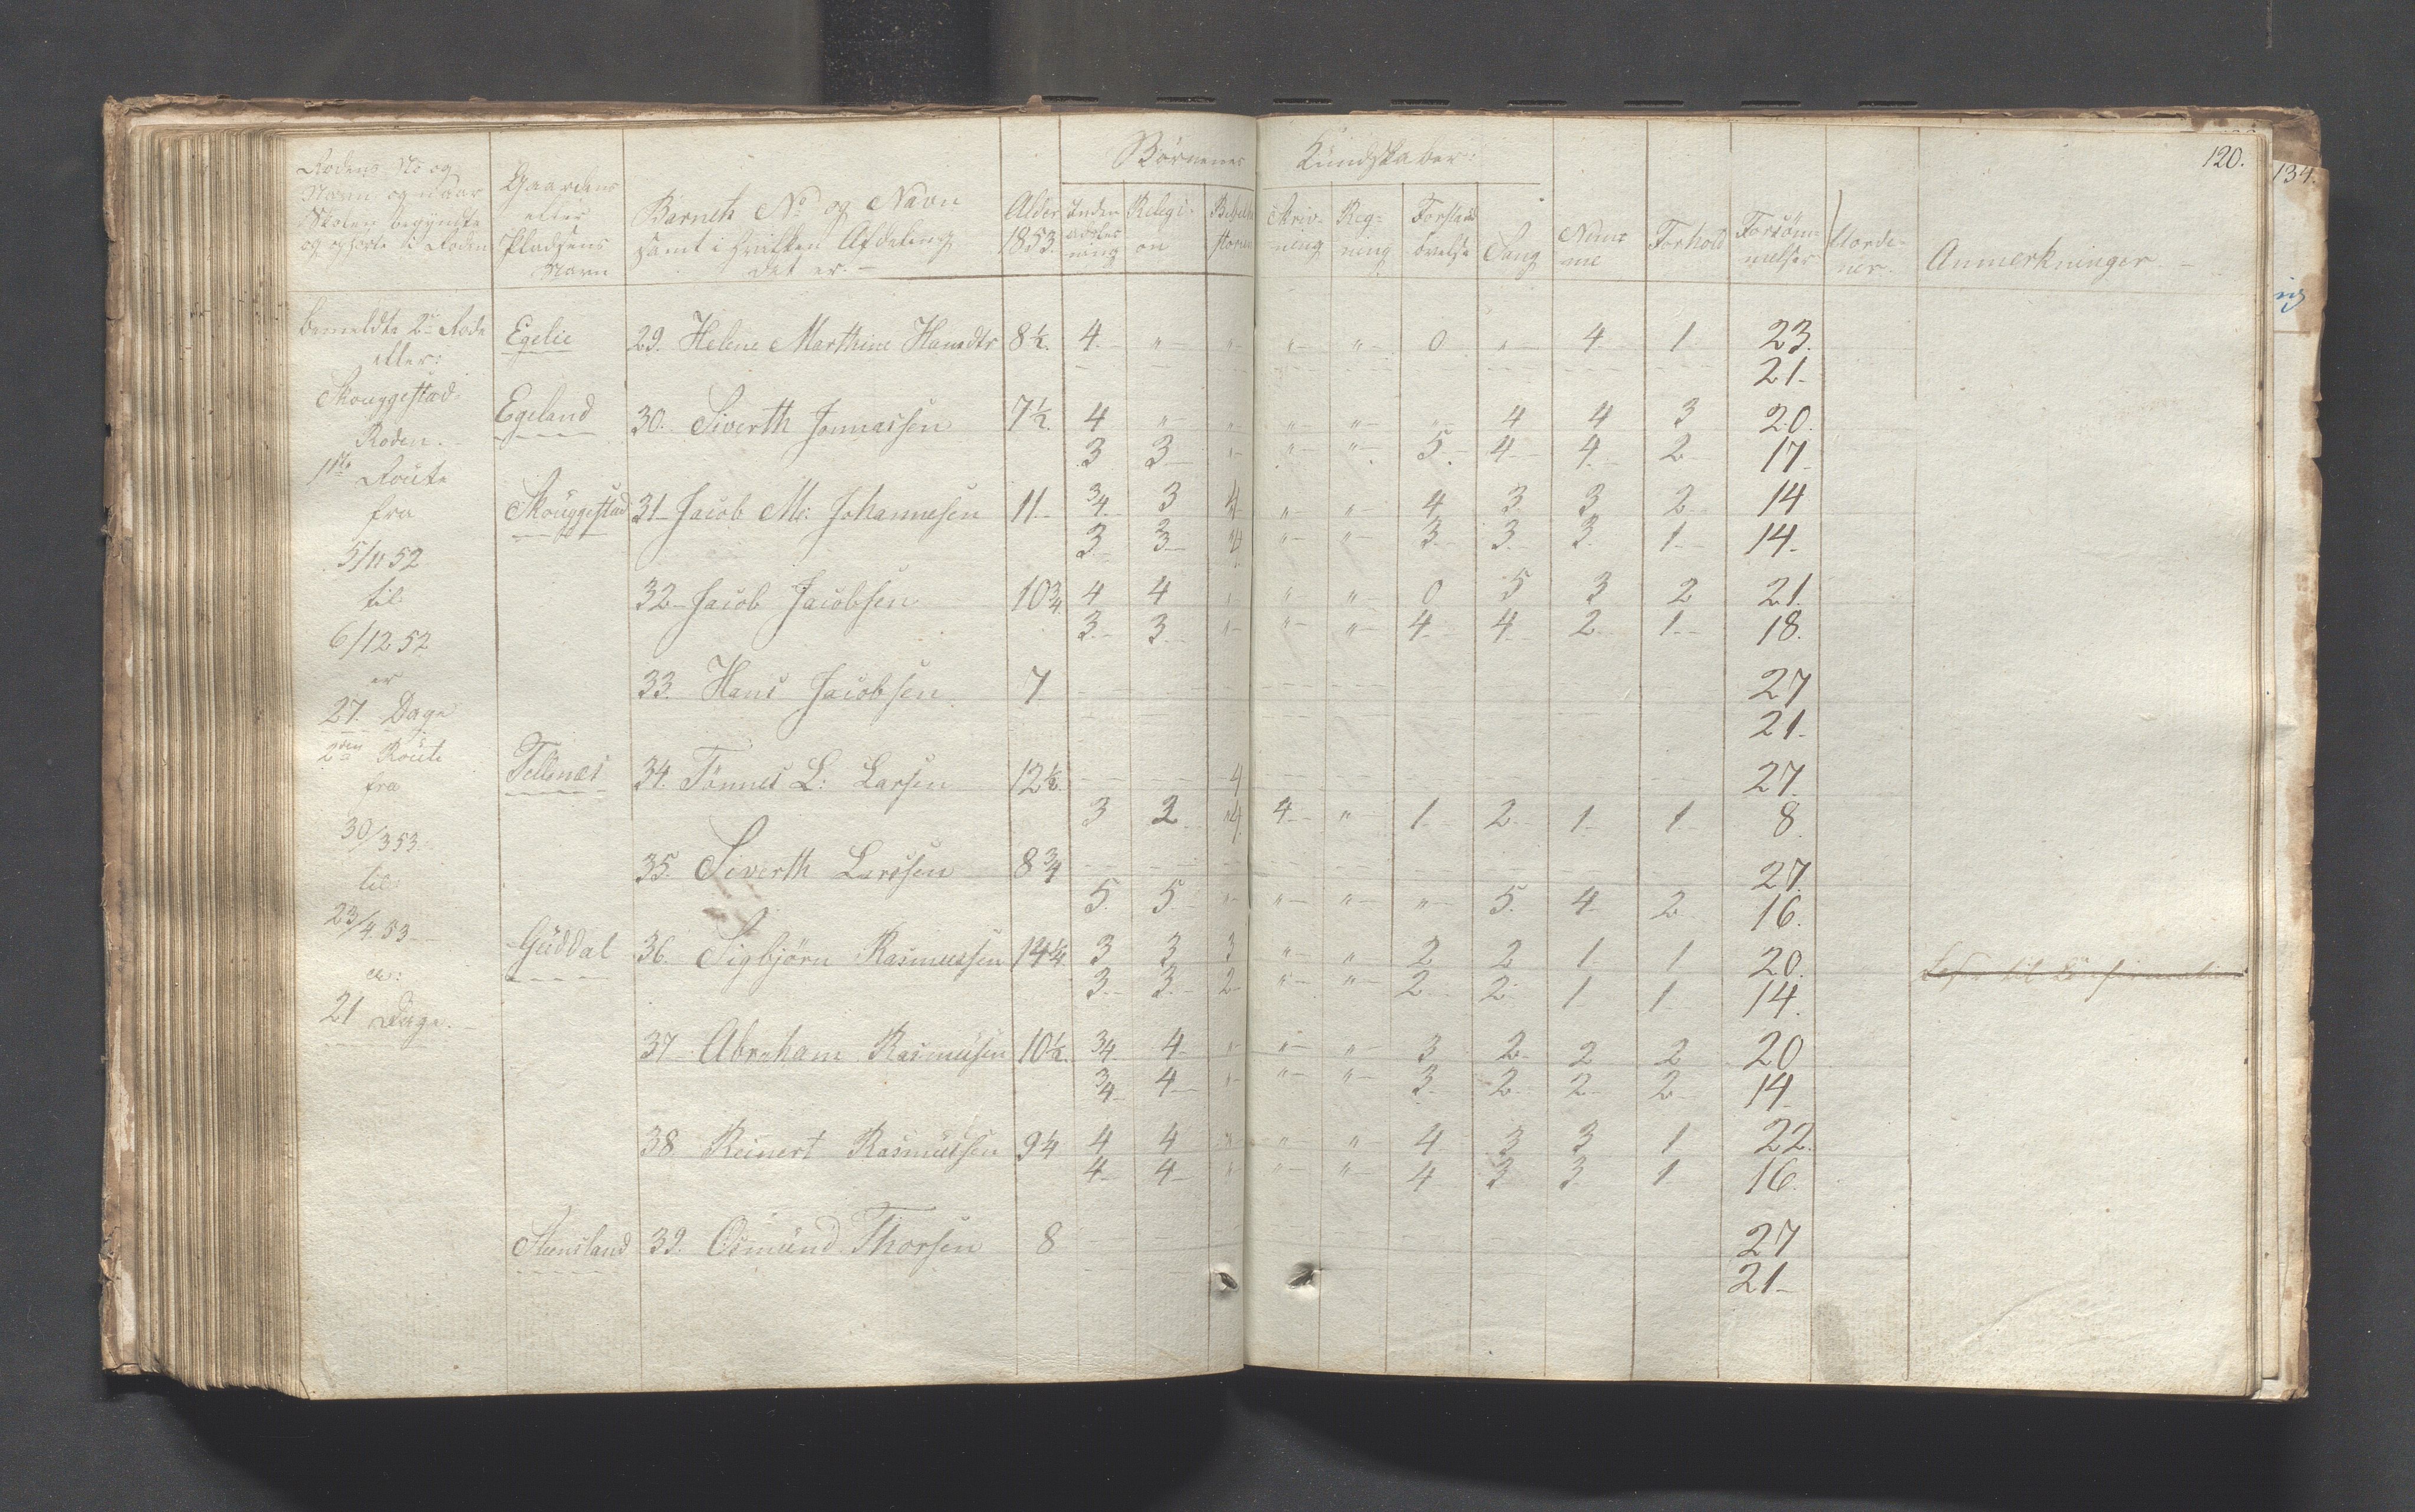 120.
134.
Børnenes Kundskaber:
Rodens No og Navn og naar Skolen begyndte og ophørte i Roden
Gaardens eller Pladsens Navn
Barnets No og Navn samt i hvilken Afdeling det er. –
Alder 1853.
Religion
Skrivning
Regning
Sang
Forhold
Forsømmelser
Anmerkninger –
bemeldte 2de Rode
eller:
Skouggestad
Roden.
1ste Route
fra
5/11 52
til
6/12 52
er
27. Dage
2den Route
fra
30/3 53.
til:
23/4 53
er:
21 Dage.
Egelie 29. Helene Marthine Hansdtr 8½. 4. " " " " 0 " 4 1 23.
21.
Egeland 30. Siverth Jonnassen 7½. 4 " " " " " 4 4 3 20.
3 3 " " " 5 4 4 2 17
Skouggestad 31 Jacob M: Johannesen 11 3/4 3 4 " " 4 3 3 2 14
3 3 " " 3 3 3 1 14.
32 Jacob Jacobsen 10¾ 4 4 " " " 0 5 3 2 21.
3 3 " " " 4 4 2 1 18.
33. Hans Jacobsen 7 27
21.
Tellenæs 34. Tønnes L: Larsen 12½ 4 27.
3 2 4 4 " 1 2 1 1 8.
35. Siverth Larssen 8¾ 27.
5 5 " " " " 5 4 2 16.
Guddal 36. Sigbjørn Rasmussen 14¼ 3 3 3 " " 2 2 1 1 20.
3 3 2 " " 2 2 1 1 14.
37 Abraham Rasmussen 10½. 3/4 4 " " " 3 2 2 2 20
3/4 4 " " " 3 2 2 2 14
38 Reinert Rasmussen 9¼ 4 4 " " " 4 3 3 1 22.
4 4 " " " 4 3 3 1 16.
Steensland 39. Osmund Thorsen 8 27
21